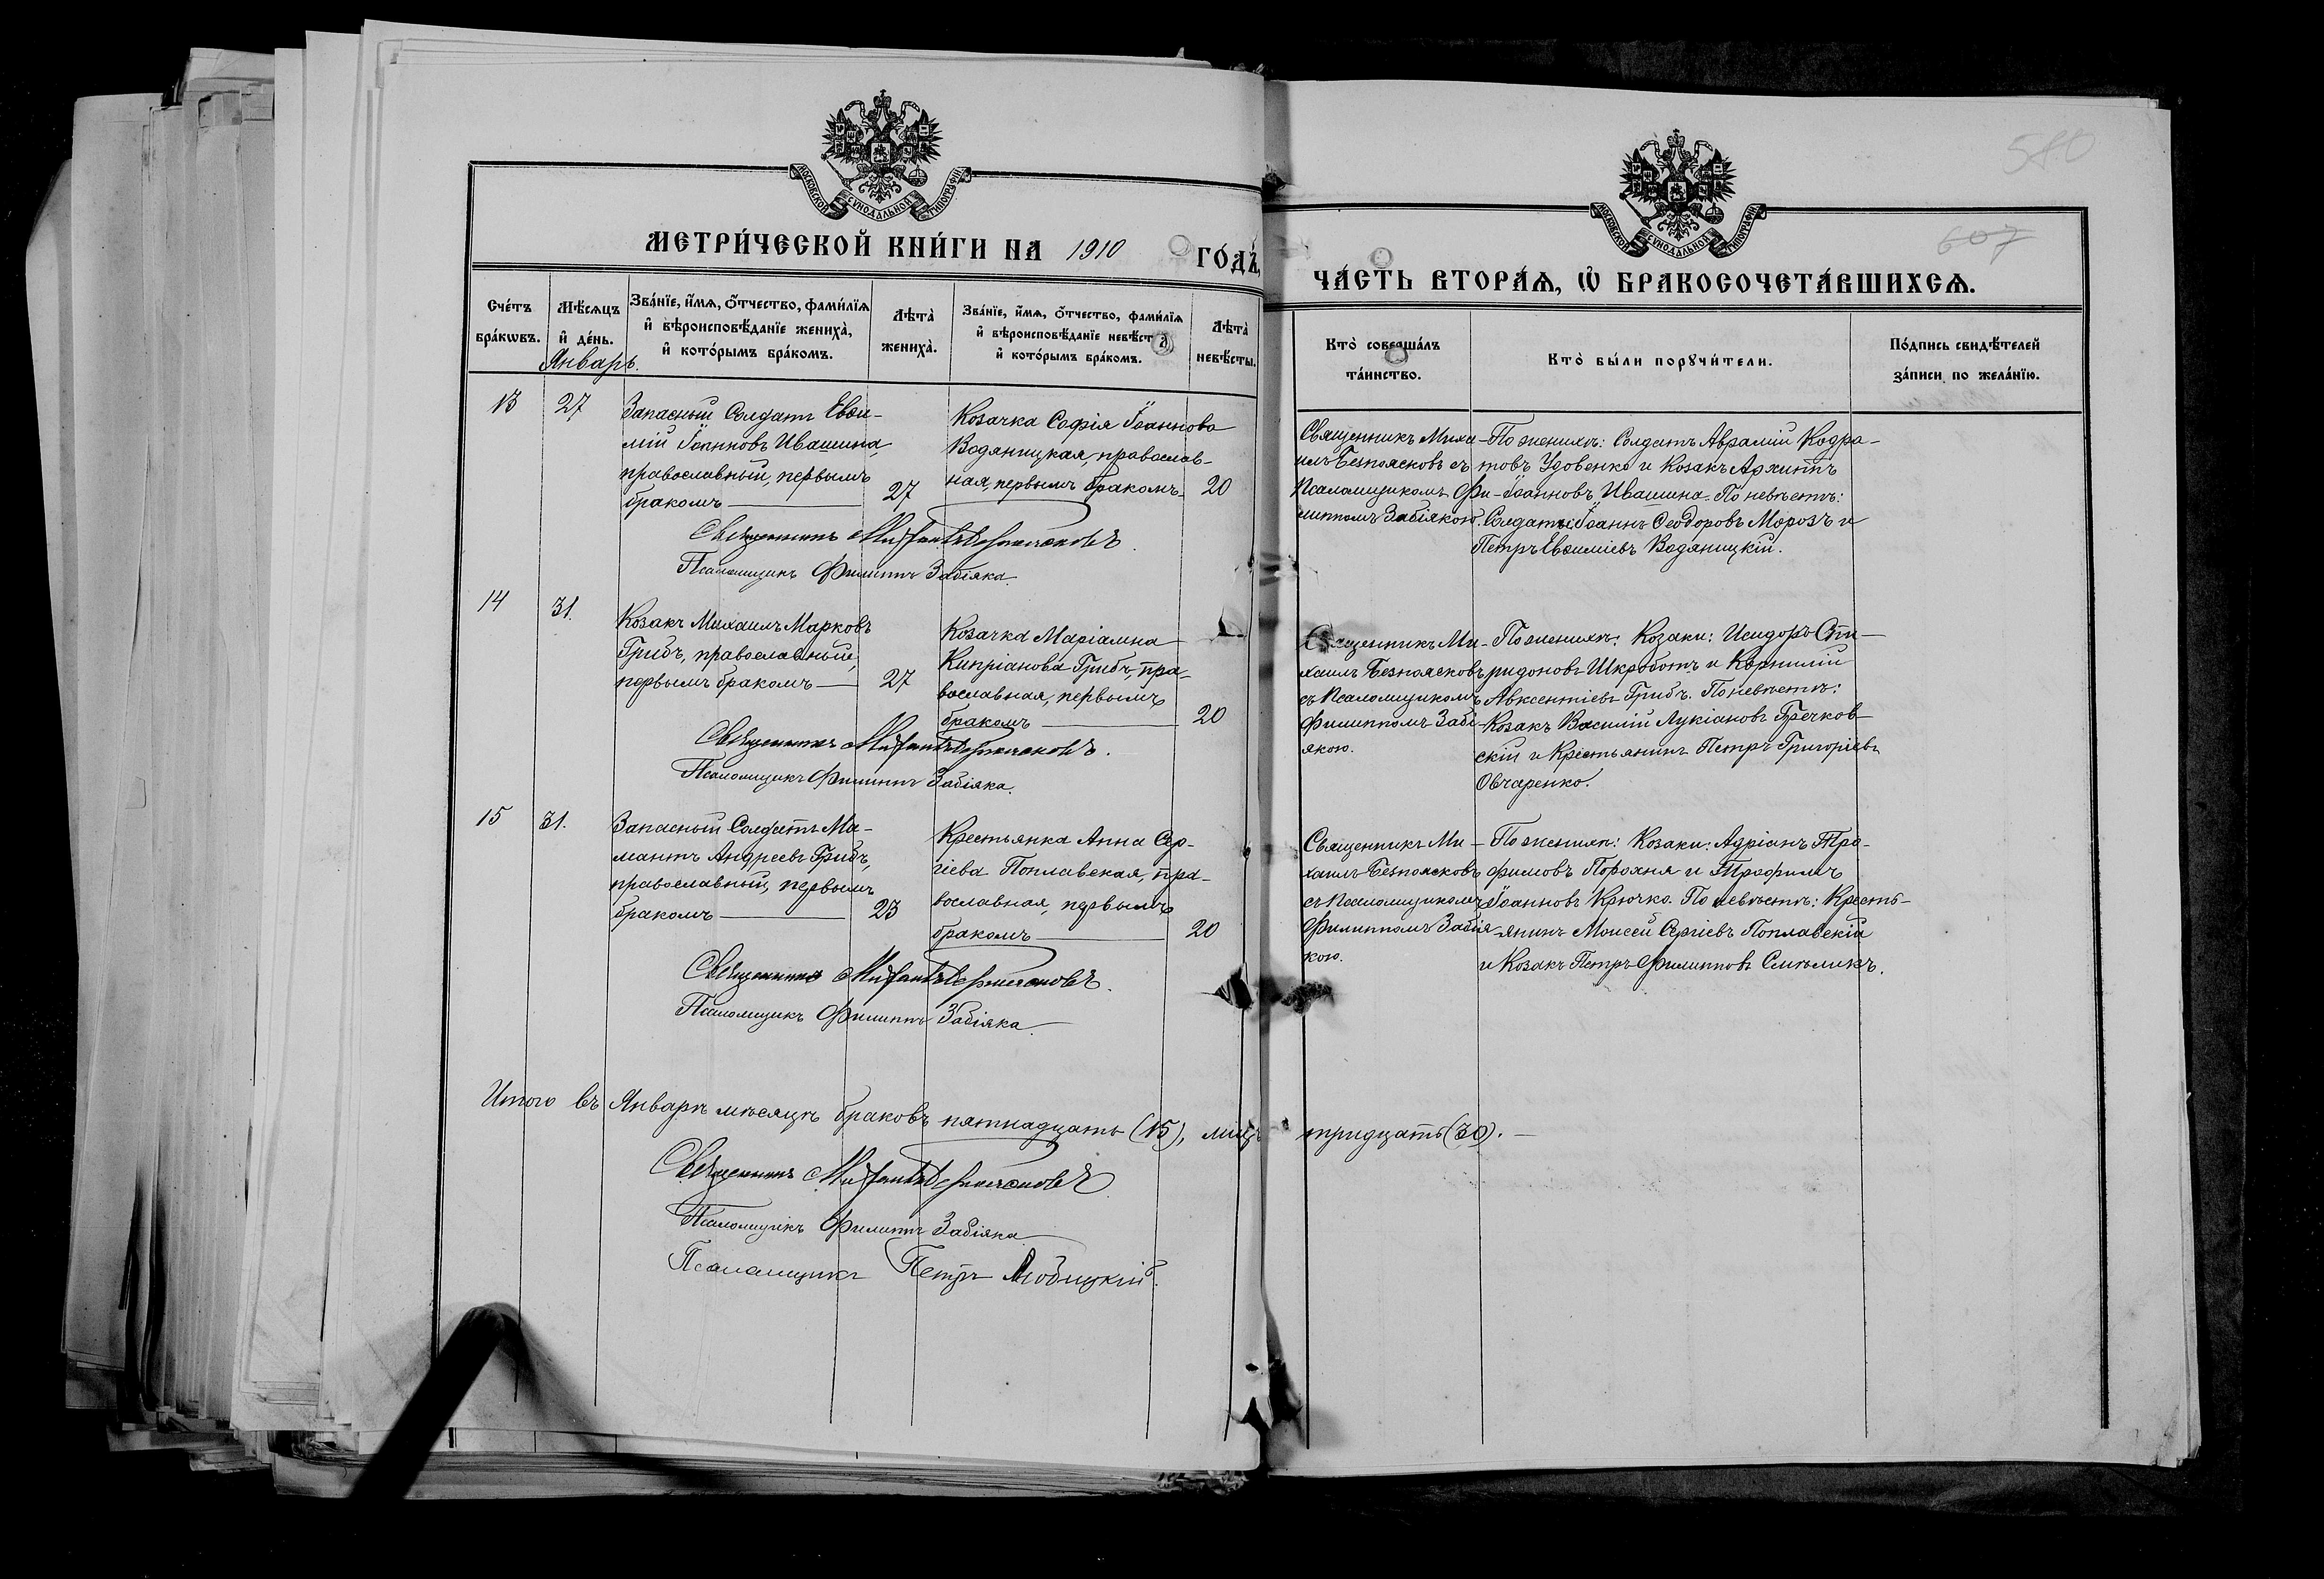 МОСКОВСКОЙ СУНОДАЛЬНОЙ ТИПОГРАФІИ
МЕТРИ́ЧЕСКОЙ КНИ́ГИ НА 1910 ГО́ДЪ,
Сче́тъ бра́кωвъ.
Мѣ́сяцъ и҆ де́нь.
Зва́нїе, и҆́мѧ, ѻ҆́тчество, фами́лїѧ
и҆ вѣроисповѣ́данїе жениха̀,
и҆ кото́рымъ бра́комъ.
Лѣта̀ жениха̀.
Зва́нїе, и҆́мѧ, ѻ҆́тчество, фами́лїѧ
и҆ вѣроисповѣ́данїе невѣ́сты
и҆ кото́рымъ бра́комъ.
Лѣта̀ невѣ́сты.
Январь.
13
27
Запасный Солдатъ Евѳи-
мій Іоанновъ Ивашина,
православный, первымъ
бракомъ
27
Козачка Софія Іоаннова
Водяницкая, православ-
ная, первымъ бракомъ.
20
Священникъ Михаилъ Безпоясковъ.
Псаломщикъ Филиппъ Забіяка.
14
31.
Козакъ Михаилъ Марковъ
Грибъ, православный,
первымъ бракомъ
27
Козачка Маріамна
Кипріанова Грибъ, пра-
вославная, первымъ
бракомъ
20
Священникъ Михаилъ Безпоясковъ.
Псаломщикъ Филиппъ Забіяка.
15
31.
Запасный Солдатъ Ма-
мантъ Андреевъ Грибъ,
православный, первымъ
бракомъ
23
Крестьянка Анна Сер-
гіева Поплавская, пра-
вославная, первымъ
бракомъ
20
Священникъ Михаилъ Безпоясковъ.
Псаломщикъ Филиппъ Забіяка.
Итого въ Январѣ мѣсяцѣ браковъ пятнадцать (15), лицъ тридцать (30).
Священникъ Михаилъ Безпоясковъ
Псаломщикъ Филиппъ Забіяка
Псаломщикъ Петръ Любицкій.
580
607
МОСКОВСКОЙ СУНОДАЛЬНОЙ ТИПОГРАФІИ
ЧА́СТЬ ВТОРА́Ѧ, Ѡ҆ БРАКОСОЧЕТА́ВШИХСѦ.
Кто̀ соверша́лъ
та́инство.
Кто̀ бы́ли порꙋчи́тели.
По́дпись свидѣ́телей
за́писи по жела́нїю.
Священникъ Миха-
илъ Безпоясковъ съ
Псаломщикомъ Фи-
липпомъ Забіякою.
По женихѣ: Солдатъ Аврамій Кодра-
товъ Удовенко и Козакъ Аѳхитъ
Іоанновъ Ивашина. По невѣстѣ:
Солдаты: Іоаннъ Ѳеодоровъ Морозъ и
Петръ Евѳиміевъ Водяницкій.
Священникъ Ми-
хаилъ Безпоясковъ
съ Псаломщикомъ
Филиппомъ Забі-
якою.
По женихѣ: Козаки: Исидоръ Спи-
ридоновъ Шкроботъ и Корнилій
Авксентіевъ Грибъ. По невѣстѣ:
Козакъ Василій Лукіановъ Гречков-
скій и Крестьянинъ Петръ Григоріевъ
Овчаренко.
Священникъ Ми-
хаилъ Безпоясковъ
съ Псаломщикомъ
Филиппомъ Забія-
кою.
По женихѣ: Козаки: Адріанъ Тро-
фимовъ Порохня и Трофимъ
Іоанновъ Крючко. По невѣстѣ: Кресть-
янинъ Моисей Сергіевъ Поплавскій
и Козакъ Петръ Филипповъ Смѣликъ.